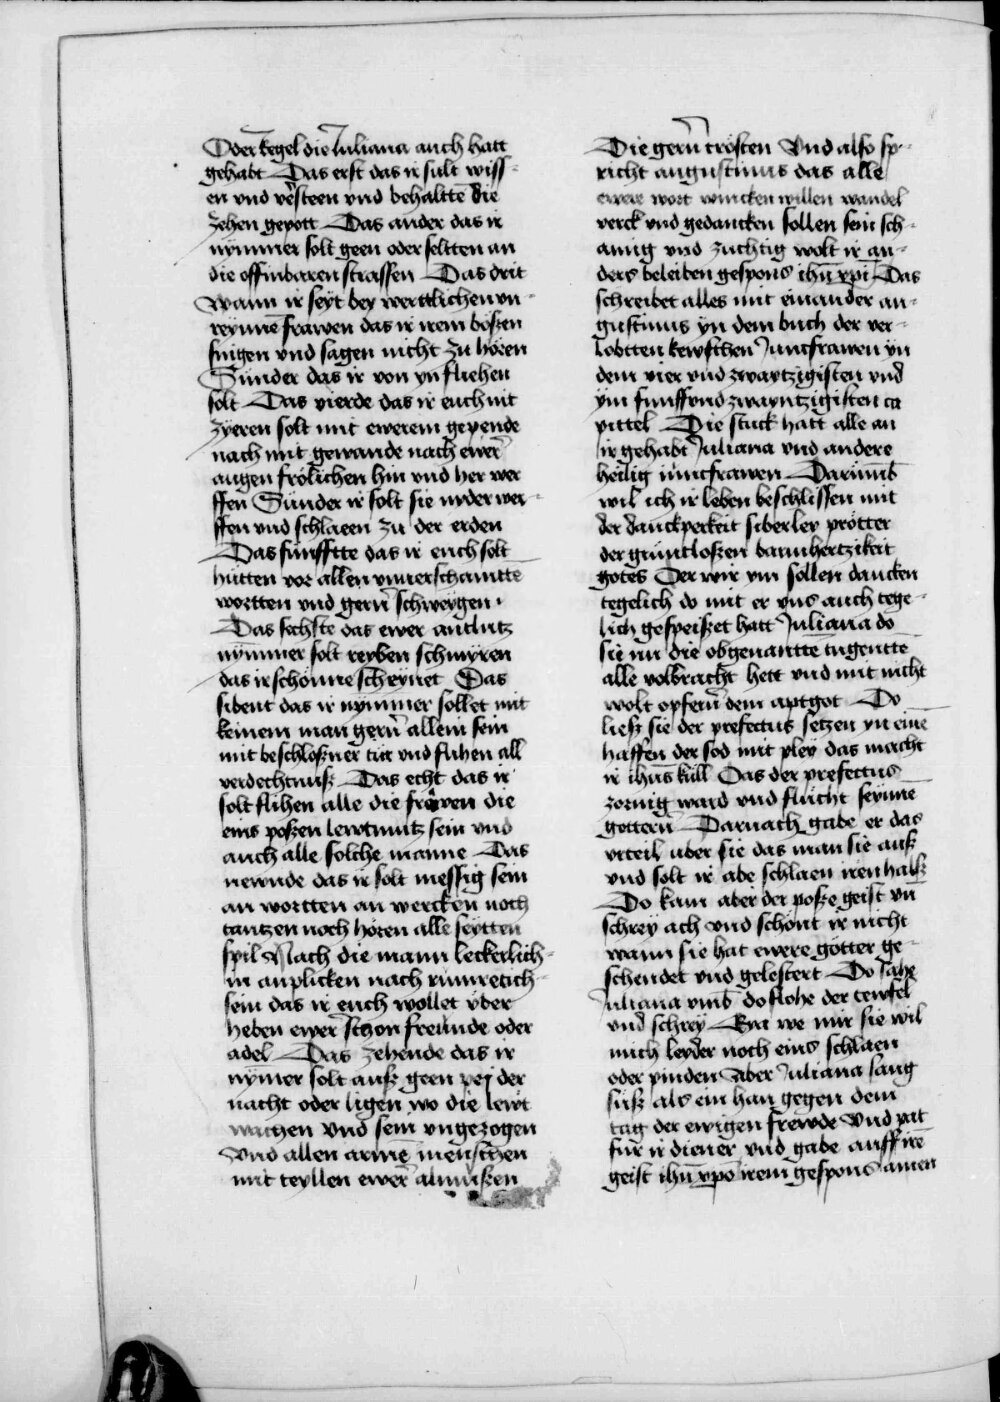 Oder regel die Juliana auch hatt
gehabt Das erst das ir sult wiss-
en vnd vesteen vnd behaltte die
zehen gepott Das ander das ir
nymmer solt geen oder seltten an
die offinbaren strassen Das drit
Wann ir seyt bey werttlichen vn-
reynnē frawen das ir irem bößen
singen vnd sagen nicht zu hören
Sünder das ir von yn fliehen
solt Das vierde das ir euch nit
zyeren solt mit ewerem gepende
nach mit gewande nach ewer
augen frölichen hin vnd her wer
ffen Sünder ir solt sie nyder wer-
ffen vnd schlaeen zu der erden
Das fünfftte das ir euch solt
hütten vor allen vnuerschamtte
wortten vnd gern schweygen
Das sechste das ewer antlutz
nymmer solt reyben schmyren
das ir schönne scheynet Das
sibent das ir nymmer sollet mit
keinem man gern allein sein
mit beschloßner tür vnd fluhen all
verdechtnuß Das echt das ir
solt flihen alle die frawen die
eins poßen lewtmutz sein vnd
auch alle solche manne Das
newnde das ir solt messig sein
an wortten an wercken noch
tantzen noch hören alle seytten
spil Nach die mann leckerlich-
in anplicken nach rumretich-
sein das ir euch wollet vber
heben ewer schon freunde oder
adel Das zehende das ir
nymer solt auß geen pej der
nacht oder ligen wo die lewt
wachen vnd sein vngezogen
Vnd allen armē menschen
mit teyllen ewer almußen
Die gern trösten Vnd also sp-
richt augustinus das alle
ewere wort wincken willen wandel
werck vnd gedancken sollen sein sch-
amig vnd zuchtig wolt ir an-
ders beleiben gespons ihū xpi Das
schreibet alles mit einander au-
gustinus yn dem buch der ver-
lobtten kewschen Junckfrawen yn
dem vier vnd zwayntzigisten vnd
ym funff vnd zwayntzigisten ca
pittel Die stuck hatt alle an
ir gehabt Juliana vnd andere
heilig iunckfrawen Darumb
wil ich ir leben beschlissen mit
der danckperkeit siberley prötter
der gruntloßen barmhertzikeit
gotes Der wir ym sollen dancken
tegelich do mit er vns auch tege-
lich gespeißet hatt Juliana do
sie nu die obgenantte tugentte
alle volbracht hett vnd mit nicht
wolt opfern dem aptgot Do
ließ sie der prefectus setzen yn eine
haffen der sod mit pley das macht
ir ihūs küll Das der prefectus
zornig ward vnd flucht seynne
gottern Darnach gabe er das
vrteil vber sie das man sie auß
vnd solt ir abe schlaen iren halß
Do kam aber der poße geist vn
schrey ach vnd schönt ir nicht
wann sie hat ewere götter ge-
schendet vnd gelestert Do sahe
Juliana vmb do flohe der tewfel
vnd schrey Eya we mir sie wil
mich leyder noch eins schlaen
oder pinden Aber Juliana sang
süß als ein han gegen dem
tag der ewigen frewde Vnd pat
fur ir diener vnd gabe auff irē
geist ihū xpō irem gespons amen